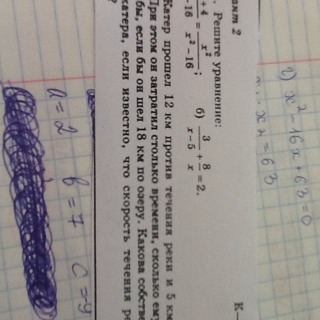 ант 2
Решите уравнение:
+ 4
-16 = x²
x² - 16 ;
б) 3/x-5 + 8/x = 2.
Катер прошел 12 км против течения реки и 5 км
При этом он затратил столько времени, сколько ему
бы, если бы он шел 18 км по озеру. Какова собстве
катера, если известно, что скорость течения ре
К—
x² - 16x + 63 = 0
x₂ = 63
a = 2 b = 7 c = 9